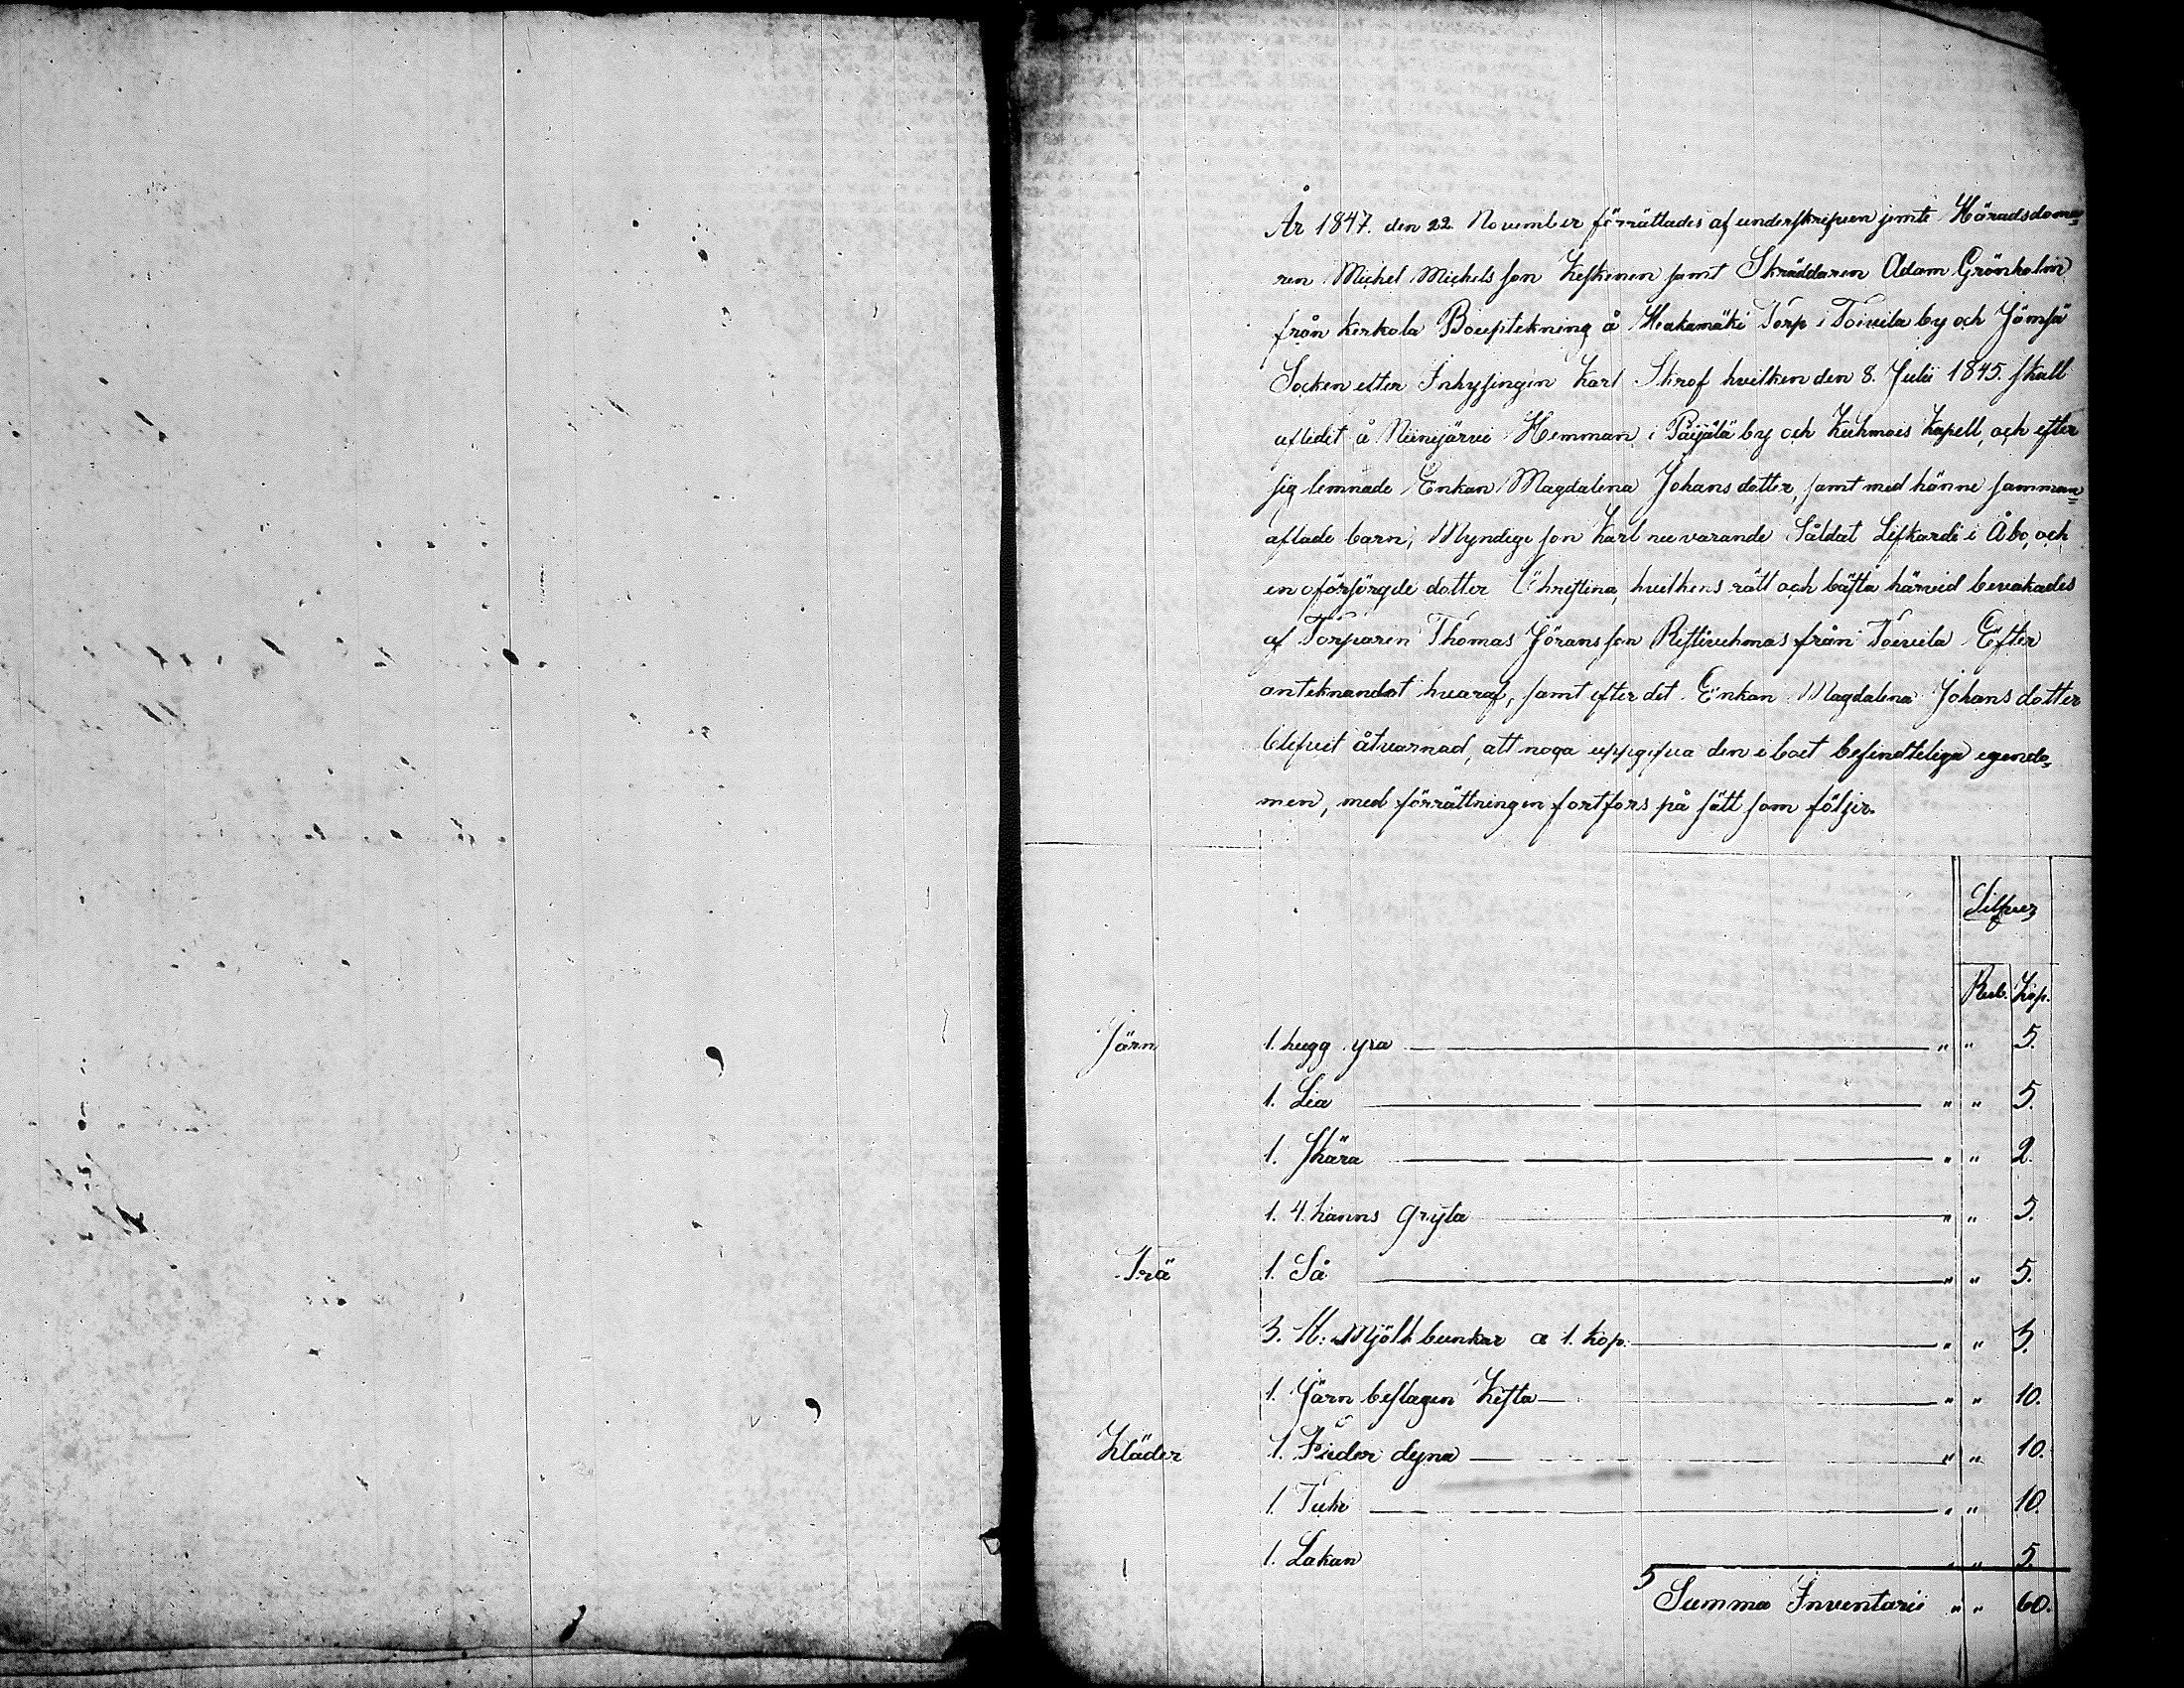 År 1847. den 22. November förrättades af underskrifven jemte Häradsdoma=
ren Michel Michelsson Keskinen samt Skräddaren Adam Grönholm
från Kerkola Bouptekning å Hakamäki Torp i Toivila by och Jämsä
Socken efter Inhysingen Karl Skrof hvilken den 8. Julii 1845. skall
aflidit å Niinijärvi Hemman i Päijälä by och Kuhmois Kapell, och efter
sig lemnade Enkan Magdalena Johansdotter, samt med hänne samman=
aflade barn, Myndige son Karl nu varande Såldat i Åbo, och
en oförsörgde dotter Christina, hvilkens rätt och bästa härvid bevakades
af Torparen Thomas Jöransson från Toivila Efter
anteknandet hvaraf, samt efter det Enkan Magdalena Johansdotter
blifvit åtvarnad, att noga uppgifva den i boet befindteliga egendo=
men, med förrättningen fortfors på sätt som följer.
Silfver
Rub. Kop.
Järn 1. hugg yxa " " 5.
1. Lia " " 5.
1. Skära " " 2.
1. 4. kanns gryta " " 5.
Trä 1. Så " " 5.
3. st: Mjölk bunkar a 1. kop. " " 3.
1. Järn beslagen Kista " " 10.
Kläder 1. Fieder dyna " " 10.
1. Täcke " " 10.
1. Lakan " " 5.
5 Summa Inventarii " " 60.